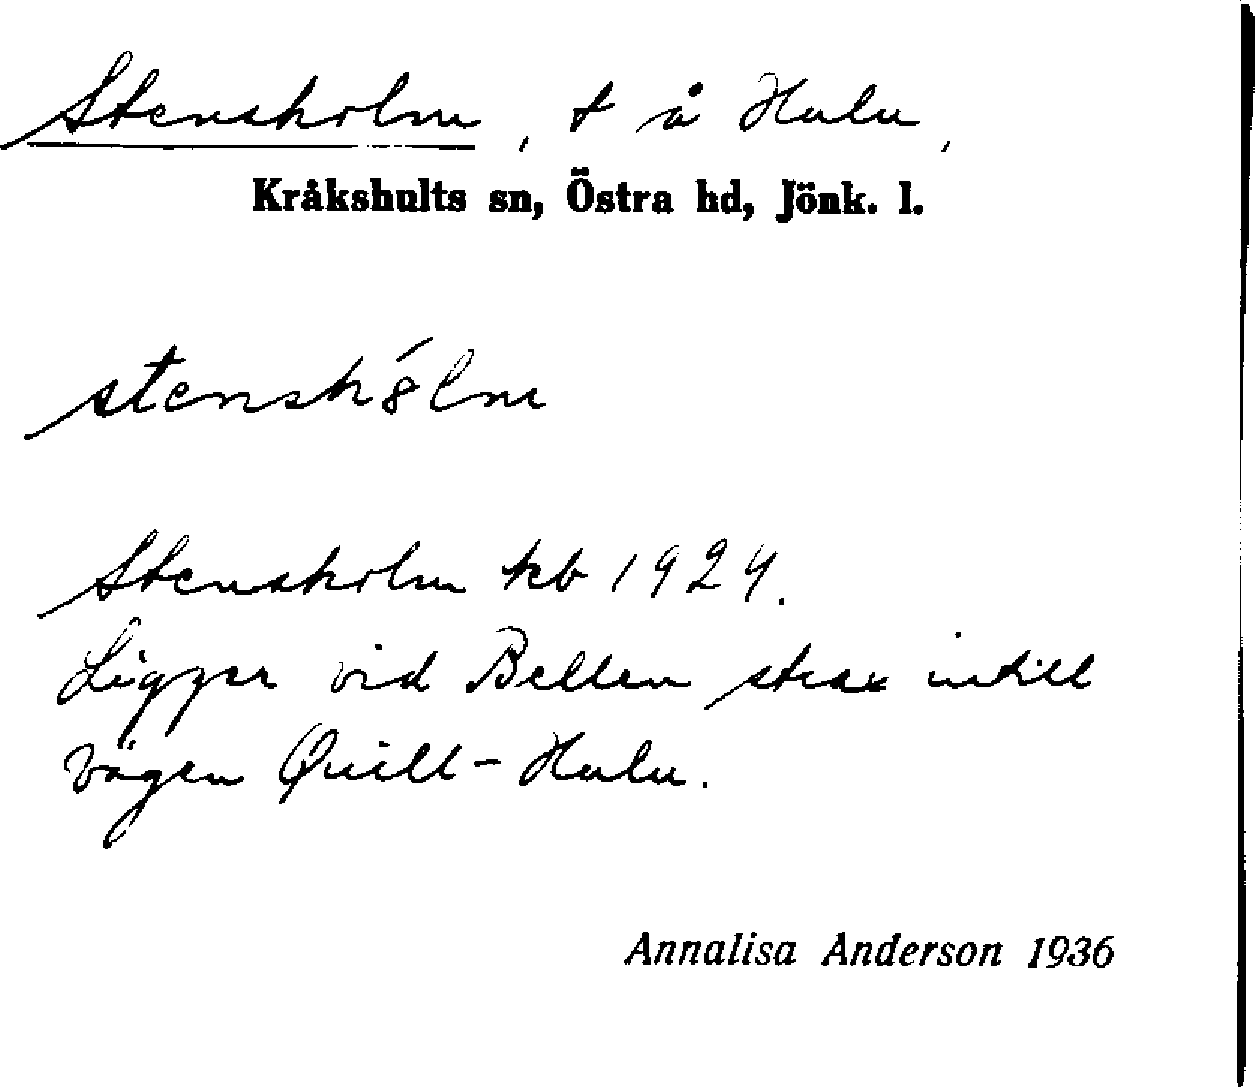 Stensholm, t å Hulu,
Kråkshults sn, Östra hd, Jönk. l.
stenshólm
Stensholm kb 1924.
Ligger vid Bellen strax intill
vägen Quill - Hulu.
Annalisa Anderson 1936